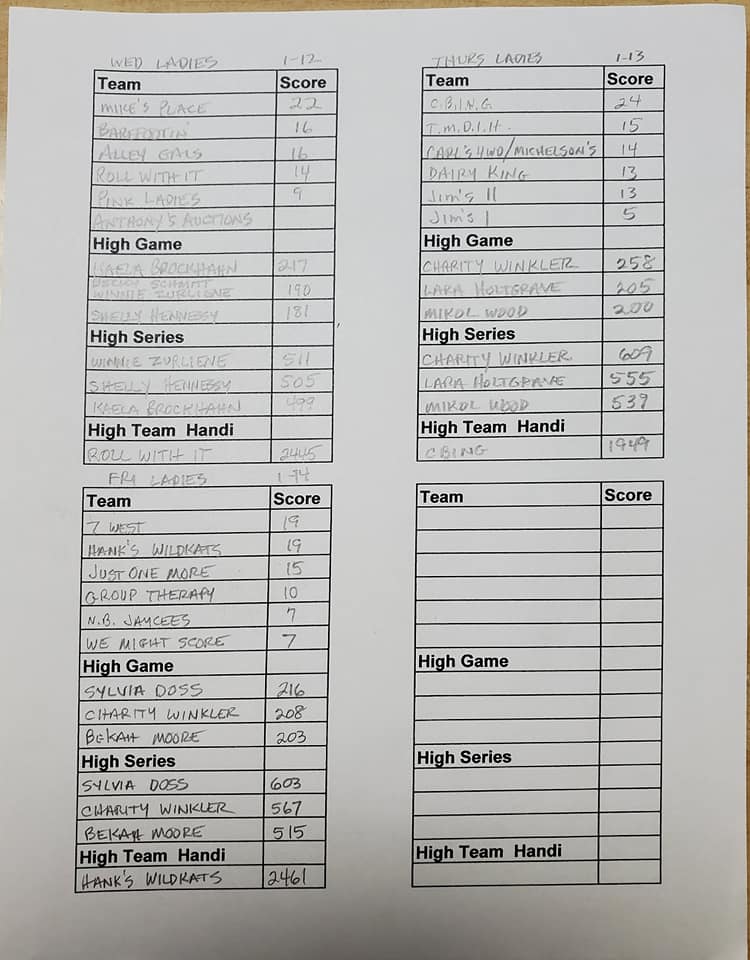 WED LADIES 1-12
Team Score
MIKE'S PLACE 22
BAREFOOTIN' 16
ALLEY GALS 16
ROLL WITH IT 14
PINK LADIES 9
ANTHONY'S AUCTIONS
High Game
KAELA BROCKHAHN 217
BECKY SCHMITT
WINNIE ZURLIENE 190
SHELLY HENNESSY 181
High Series
WINNIE ZURLIENE 511
SHELLY HENNESSY 505
KAELA BROCKHAHN 499
High Team Handi
ROLL WITH IT 2445
THURS LADIES 1-13
Team Score
C.B.I.N.G 24
T.M.D.I.H. 15
CARL'S 4WD/MICHELSON'S 14
DAIRY KING 13
Jim's II 13
Jim's I 5
High Game
CHARITY WINKLER 258
LARA HOLTGRAVE 205
MIKOL WOOD 200
High Series
CHARITY WINKLER 609
LARA HOLTGRAVE 555
MIKOL WOOD 539
High Team Handi
CBING 1949
FRI LADIES 1-14
Team Score
7 WEST 19
HANK'S WILDKATS 19
JUST ONE MORE 15
GROUP THERAPY 10
N.B. JAYCEES 7
WE MIGHT SCORE 7
High Game
SYLVIA DOSS 216
CHARITY WINKLER 208
BEKAH MOORE 203
High Series
SYLVIA DOSS 603
CHARITY WINKLER 567
BEKAH MOORE 515
High Team Handi
HANK'S WILDKATS 2461
Team Score
High Game
High Series
High Team Handi